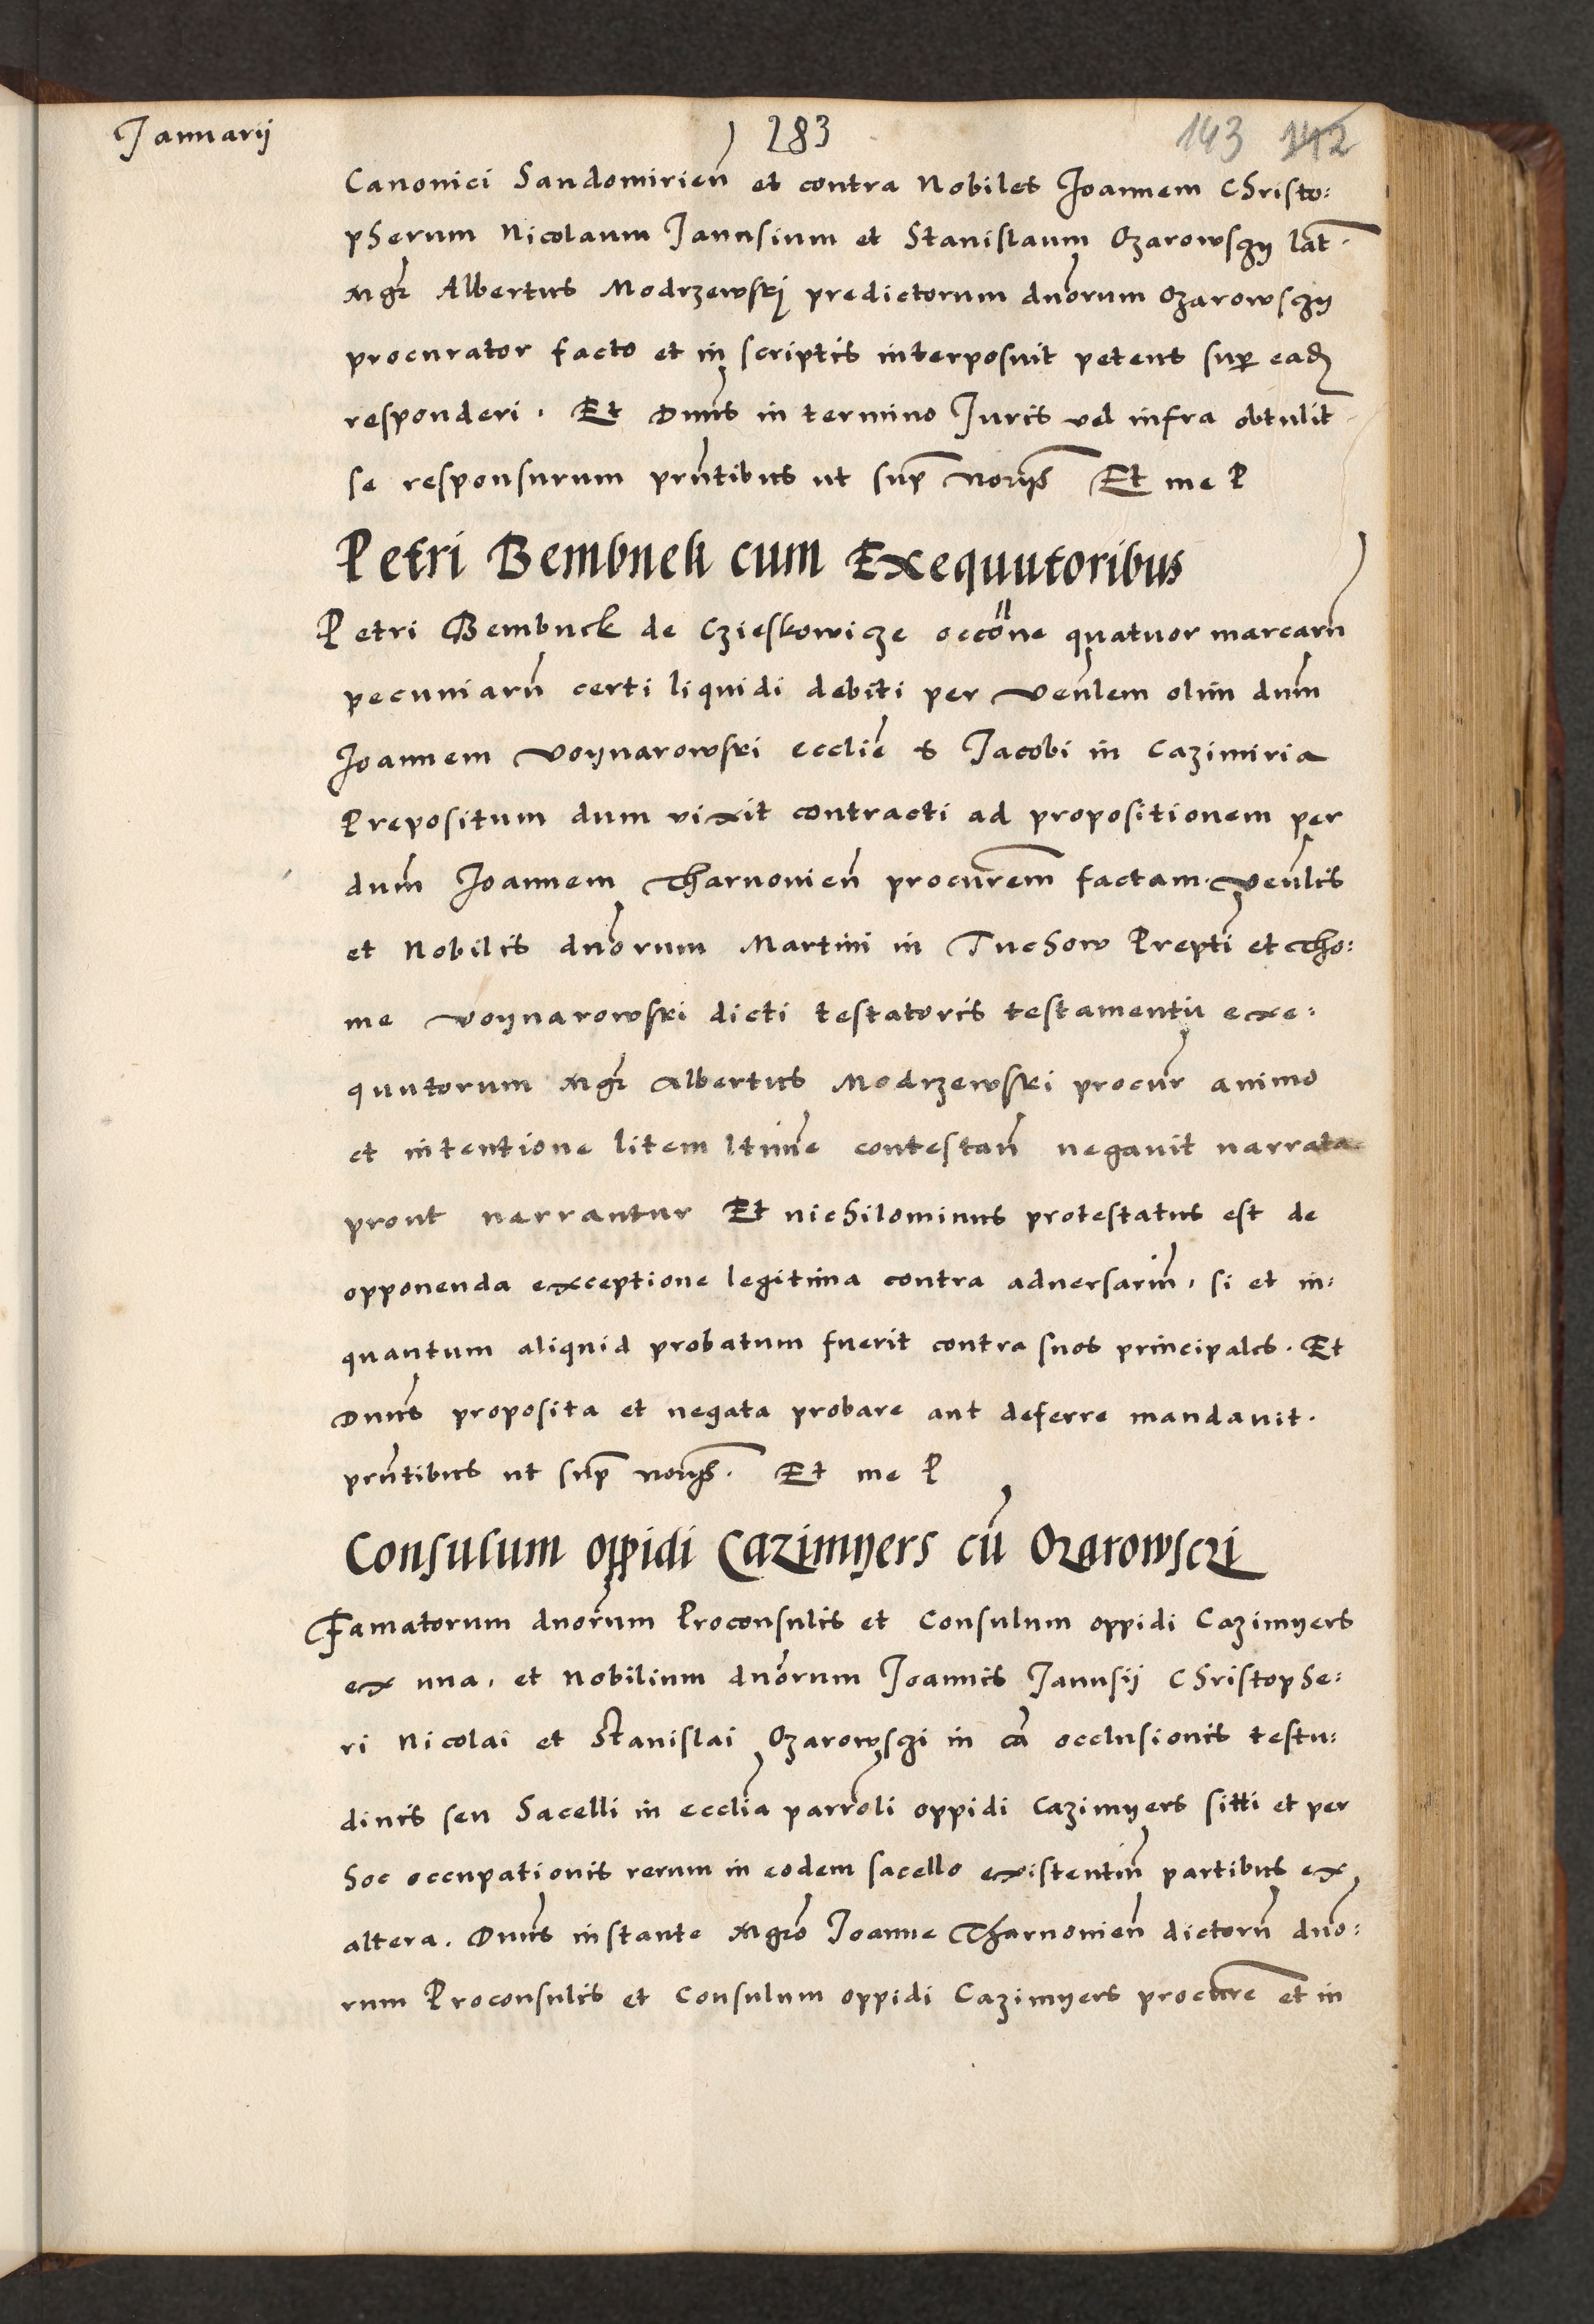 Januarij
283
143 142
Canonici Sandomirien̄ et contra Nobiles Joannem Christo:
pherum Nicolaum Janusium et Stanislaum Ozarowsczy lat̄.
Mgr̄ Albertus Modrzewskj predictorum dn̄orum Ozarowsczy
procurator facto et in scriptis interposuit petens sup̄ ead̄
responderi. Et Dn̄us in termino Juris vel infra obtulit
se responsurum pn̄tibus ut sup̄ Norijs̄ Et me P
Petri Bembnek cum Exequutoribus
Petri Bembnek de Czieskowicze occōne quatuor marcarū
pecuniarū certi liquidi debiti per Ven̄lem olim dn̄m
Joannem Voynarowski eccliē S Jacobi in Cazimiria
Prepositum dum vixit contracti ad propositionem per
dn̄m Joannem Tharnovien̄ procurem̄ factam. Ven̄lis
et Nobilis dn̄orum Martini in Tuchow Prepti̅ et Tho:
me Voynarowski dicti testatoris testamentū exe:
quutorum Mgr̄ Albertus Modrzewski procur̄ animo
et intentione litem ltime̅ contestan̄ negavit narrata
prout narrantur Et nichilominus protestatus est de
opponenda exceptione legitima contra adversariū, si et in:
quantum aliquid probatum fuerit contra suos principales. Et
Dn̄us proposita et negata probare aut deferre mandavit.
pn̄tibus ut sup̄ norijs̄. Et me P
Consulum oppidi Cazimyers cū Ozarowsczi
Famatorum dn̄orum Proconsulis et Consulum oppidi Cazimyers
ex una, et Nobilium dn̄orum Joannis Janusij Christophe:
ri Nicolai et Stanislai Ozarowsczi in cā occlusionis testu:
dinis seu Sacelli in ecclīa parrōli oppidi Cazimyers sitti et per
hoc occupationis rerum in eodem sacello existentiū partibus ex
altera. Dn̄us instante Mgrō Joanne Tharnovien̄ dictorū dn̄o:
rum Proconsulis et Consulum oppidi Cazimyers procure̅ et in